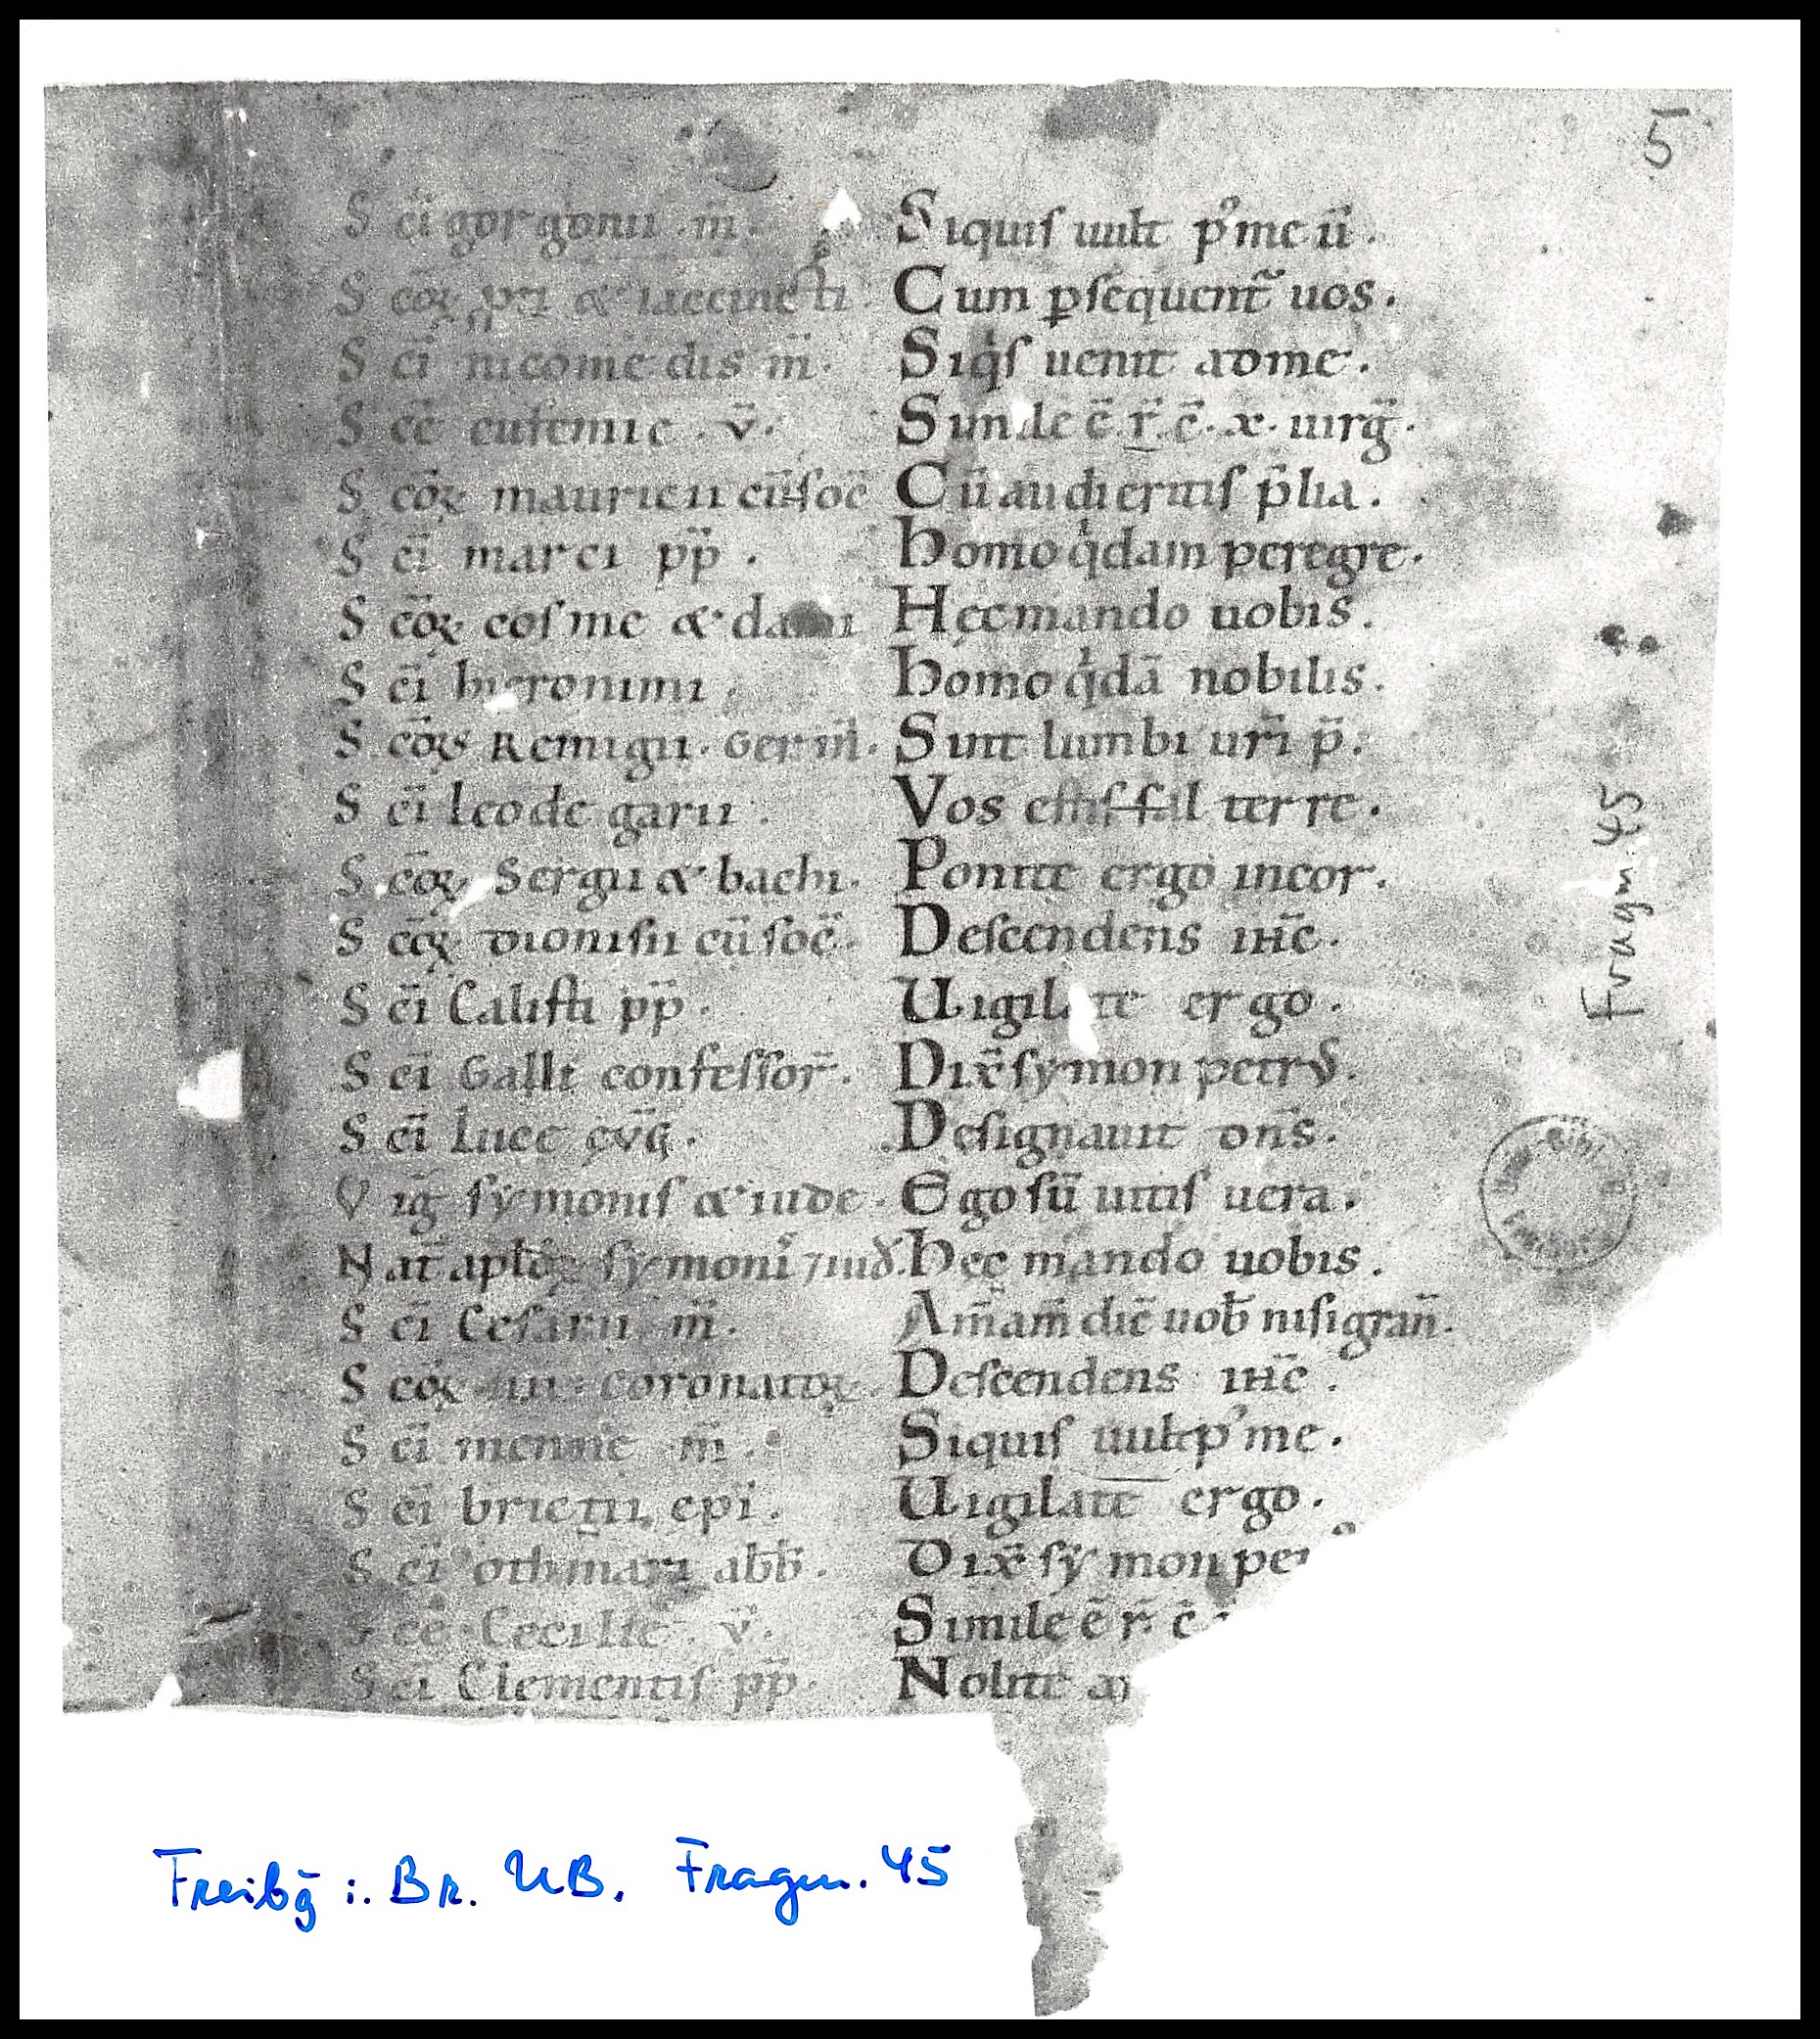 5
S c̄i gorgonii . m̄. Siquis uult p᷒ me ū.
S c̄oꝝ p̄ti & iaccincti . Cum ꝑsequent᷑ uos.
S c̄i nicomedis m̄. Siqͥs uenit adme.
S c̄e eufemie . v̄. Simile ē r̄. c̄. x. uirḡ.
S c̄oꝝ mauricii cū soc̄ Cū audieritis p̄lia.
S c̄i marci pp̄ . Homo qͥdam peregre.
S c̄oꝝ cosme & dami Hęc mando uobis.
S c̄i hieronimi . Homo qͥdā nobilis.
S c̄oꝝ Remigii . Germ̄. Sint lumbi ur̄i p̄.
S c̄i leodegarii . Vos estis sal terre.
S c̄oꝝ Sergii & bachi. Ponite ergo incor.
S c̄oꝝ dionisii cū soc̄. Descendens ih̄c.
S c̄i Calisti pp̄. Uigilate ergo.
S c̄i Galli confessor̄. Dix̄ symon petrus.
S c̄i Luce ęvḡ. Designauit dn̄s.
V iḡ symonis & iude . Ego sū uitis uera.
Nat̄ apl̄oꝝ symoni᷒ ⁊iud̄. Hęc mando uobis.
S c̄i Cesarii m̄. Am̄am̄ dic̄ uob̄ nisi gran̄.
S c̄oꝝ iiii coronatoꝝ. Descendens ih̄c.
S c̄i menne m̄. Siquis uult p᷒ me.
S c̄i brictii epi̅. Uigilate ergo.
S c̄i othmari abb̄. Dix̄ symon pet
S c̄e Cecilie . v̄. Simile ē r̄. c̄.
S c̄i Clementis pp̄. Nolite
Fragm. 45
Freibg̅ i. Br. UB. Fragm. 45